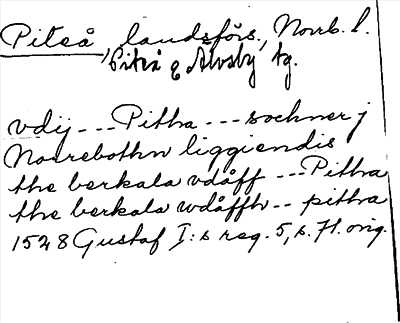 Piteå, landsförs., Norrb. l.
Piteå o Älvsby tg.
vdij --- Pitha --- sochner j
Norrebothn liggiendis
the berkala vdåff --- Pitha
the berkala wdåffh -- pitha
1528 Gustaf I:s reg. 5, s. 71. orig.